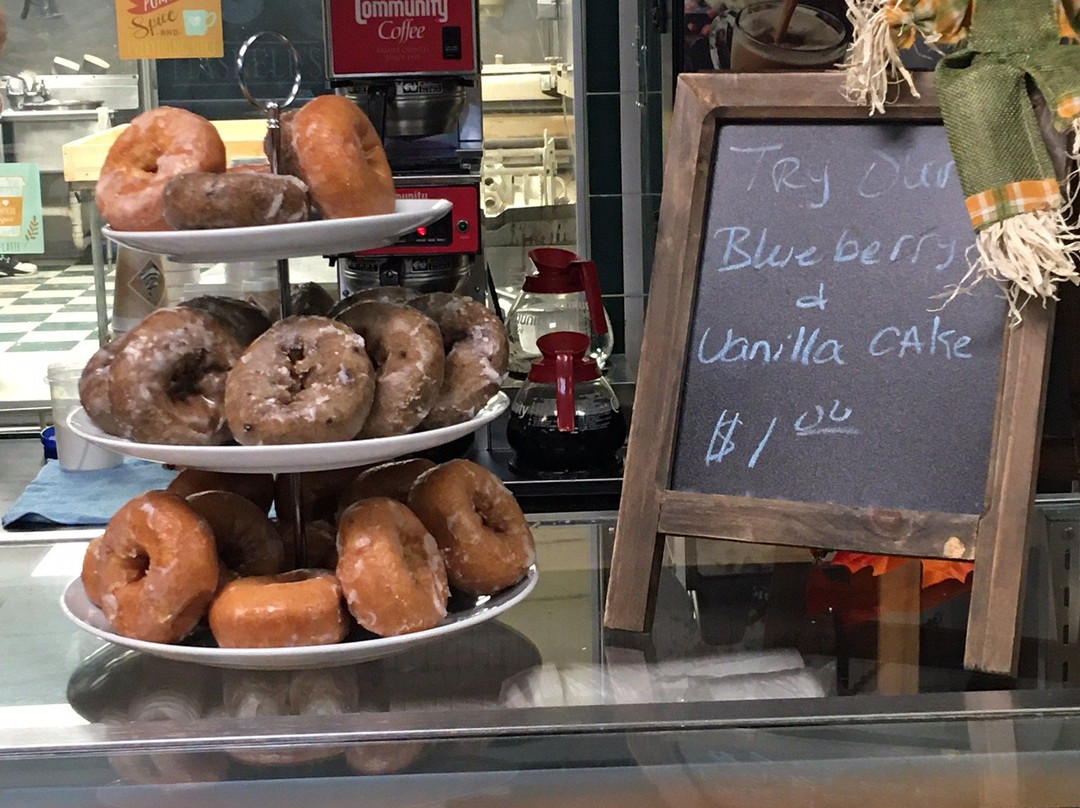 Spice
Community
Coffee
Try Our
Blueberry
&
Vanilla CAke
$1 00